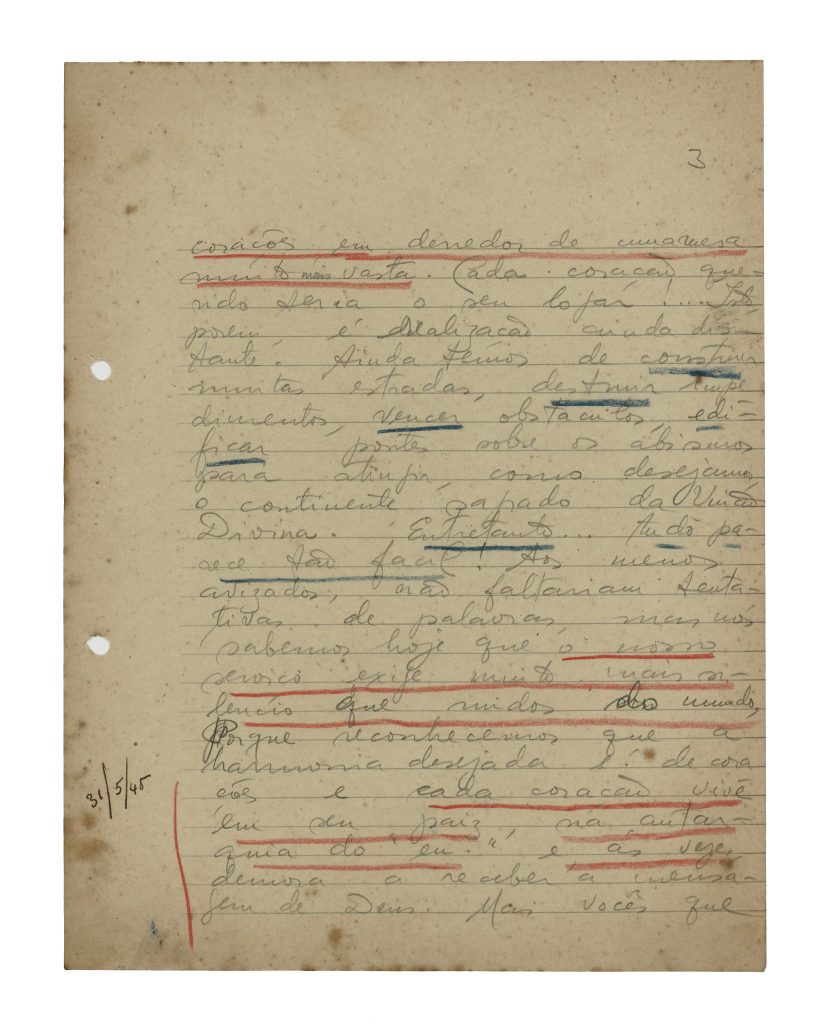 3
corações em derredor de uma mesa
muito mais vasta. Cada coração que-
rido teria o seu logar!.... Isto
porém, é realização ainda dis-
tante. Ainda temos de construir
muitas estradas, destruir impe
dimentos, vencer obstaculos, edi-
ficar pontes sobre os abismos
para atingir, como desejamos,
o continente sagrado da União
Divina. Entretanto... tudo pa-
rece tão facil! Aos menos
avizados, não faltariam tenta-
tivas de palavras, mas nós
sabemos hoje que o nosso
serviço exige muito mais si-
lencio que ruidos do mundo,
Porque reconhecemos que a
harmonia desejada é de cora
ções e cada coração vive
em seu paiz, na autar-
quia do "eu", e, ás vezes,
demora a receber a mensa-
gem de Deus. Mas vocês que
31/5/45